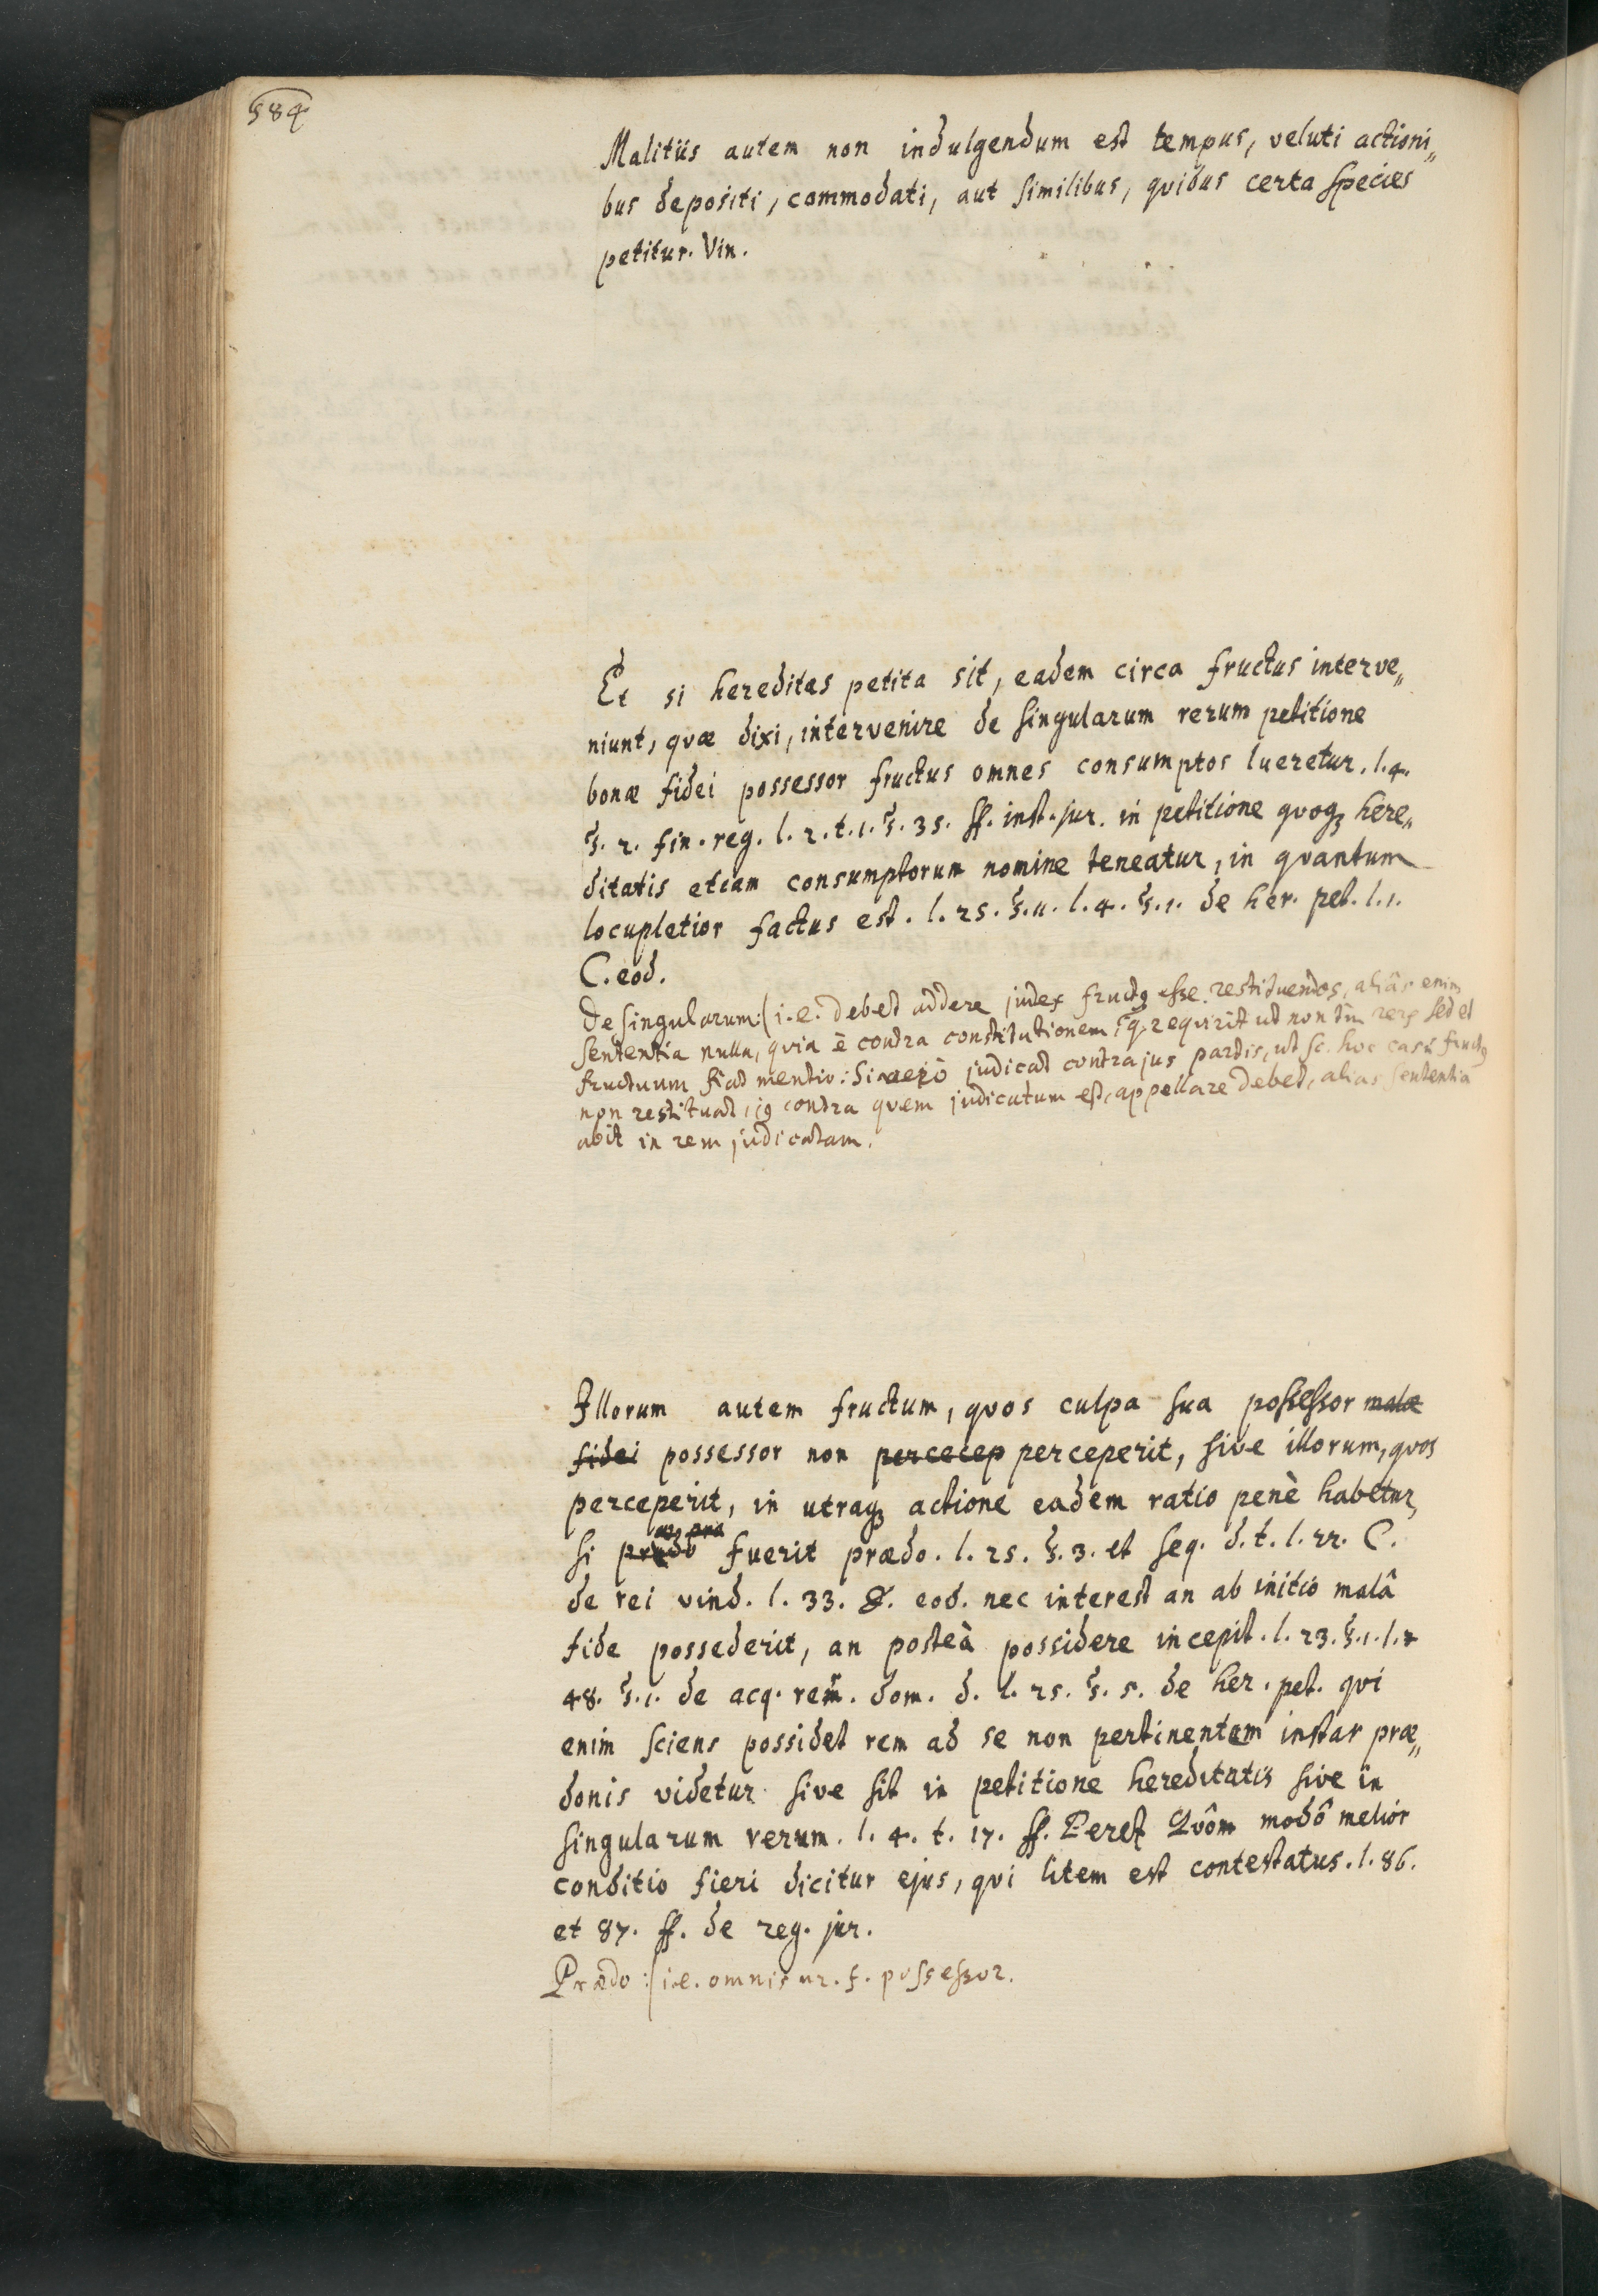 584
Malitiis autem non indulgendum est tempus, veluti actioni„
bus depositi, commodati, aut similibus, quibus certa species
petitur. Vin.
Et si hereditas petita sit, eadem circa fructus interve„
niunt, quæ dixi, intervenire de singularum rerum petitione
bonæ fidei possessor fructus omnes consumptos lueretur. l. 4.
§. 2. fin. reg. l. 2. t. 1. §. 35. ff. inst. jur. in petitione quoqꝫ here„
ditatis etiam consumptorum nomine teneatur, in quantum
locupletior factus est. l. 25. §. 11. l. 4. §. 1. de her. pet. l. 1.
C. eod.
De singularum:/ i. e. debet addere judex fructꝯ esse restituendos, aliâs enim
sententia nulla, quia ē contra constitutionem, q. requirit ut non tm̄ rerꝫ sed et
fructuum fiat mentio: Si verò judicat contra jus partis, ut sc. hoc casu fructꝯ
non restituat, iꝯ contra quem judicatum est, appellare debet, alias sententia
abit in rem judicatam.
Illorum autem fructum, quos culpa sua possessor malæ
fidei possessor non percecep perceperit, sive illorum, quos
perceperit, in utraqꝫ actione eadem ratio penè habetur,
si prædo fuerit prædo. l. 25. §. 3. et seq. d. t. l. 22. C.
de rei vind. l. 33. ff. eod. nec interest an ab initio malâ
fide possederit, an posteà possidere incepit. l. 23. §. 1. l.
48. §. 1. de acq. rer. dom. d. l. 25. §. 5. de her. pet. qui
enim sciens possidet rem ad se non pertinentem instar præ„
donis videtur sive sit in petitione hereditatis sive in
singularum rerum. l. 4. t. 17. ff. Perez Quôm modô melior
conditio fieri dicitur ejus, qui litem est contestatus. l. 86.
et 87. ff. de reg. jur.
Prædo :/ i. e. omnis m. f. possessor.